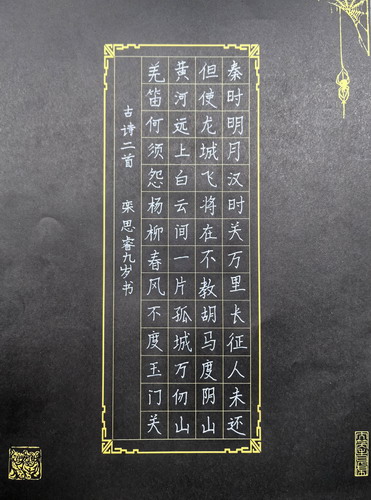 秦时明月汉时关万里长征人未还
但使龙城飞将在不教胡马度阴山
黄河远上白云间一片孤城万仞山
羌笛何须怨杨柳春风不度玉门关
古诗二首 栾思睿九岁书